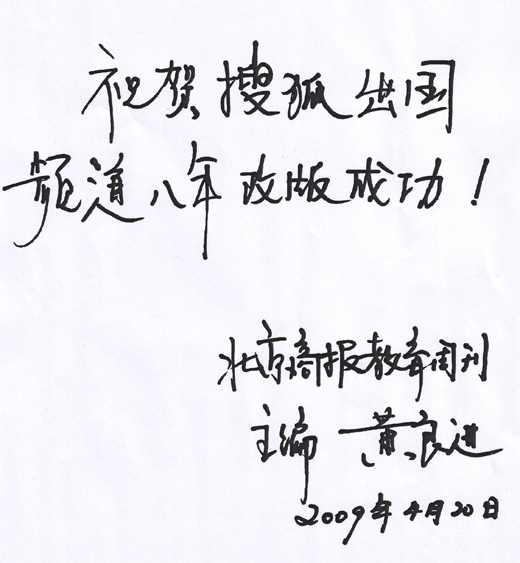 祝贺搜狐出国
频道八年改版成功！
北京商报教育周刊
主编 黄良进
2009年4月20日